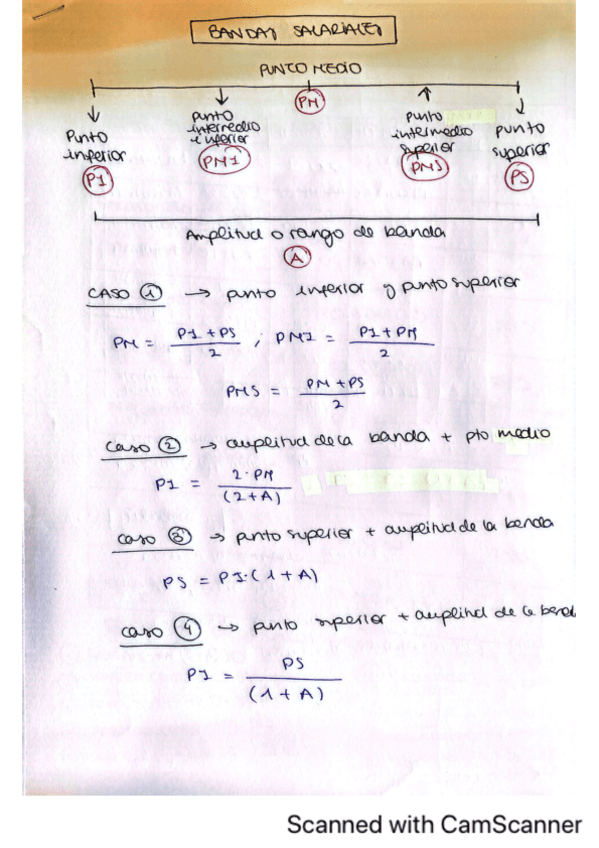 BANDAS SALARIALES
PUNTO MEDIO
PM
Punto inferior
PI
Punto intermedio inferior
PMI
Punto intermedio superior
PMS
Punto superior
PS
Amplitud o rango de banda
A
CASO 1 → punto inferior y punto superior
PM = PI + PS / 2 ; PMI = PI + PM / 2
PMS = PM + PS / 2
Caso 2 → amplitud de la banda + pto medio
PI = 2 · PM / (2 + A)
Caso 3 → punto superior + amplitud de la banda
PS = PI · (1 + A)
Caso 4 → punto superior + amplitud de la band
PI = PS / (1 + A)
Scanned with CamScanner